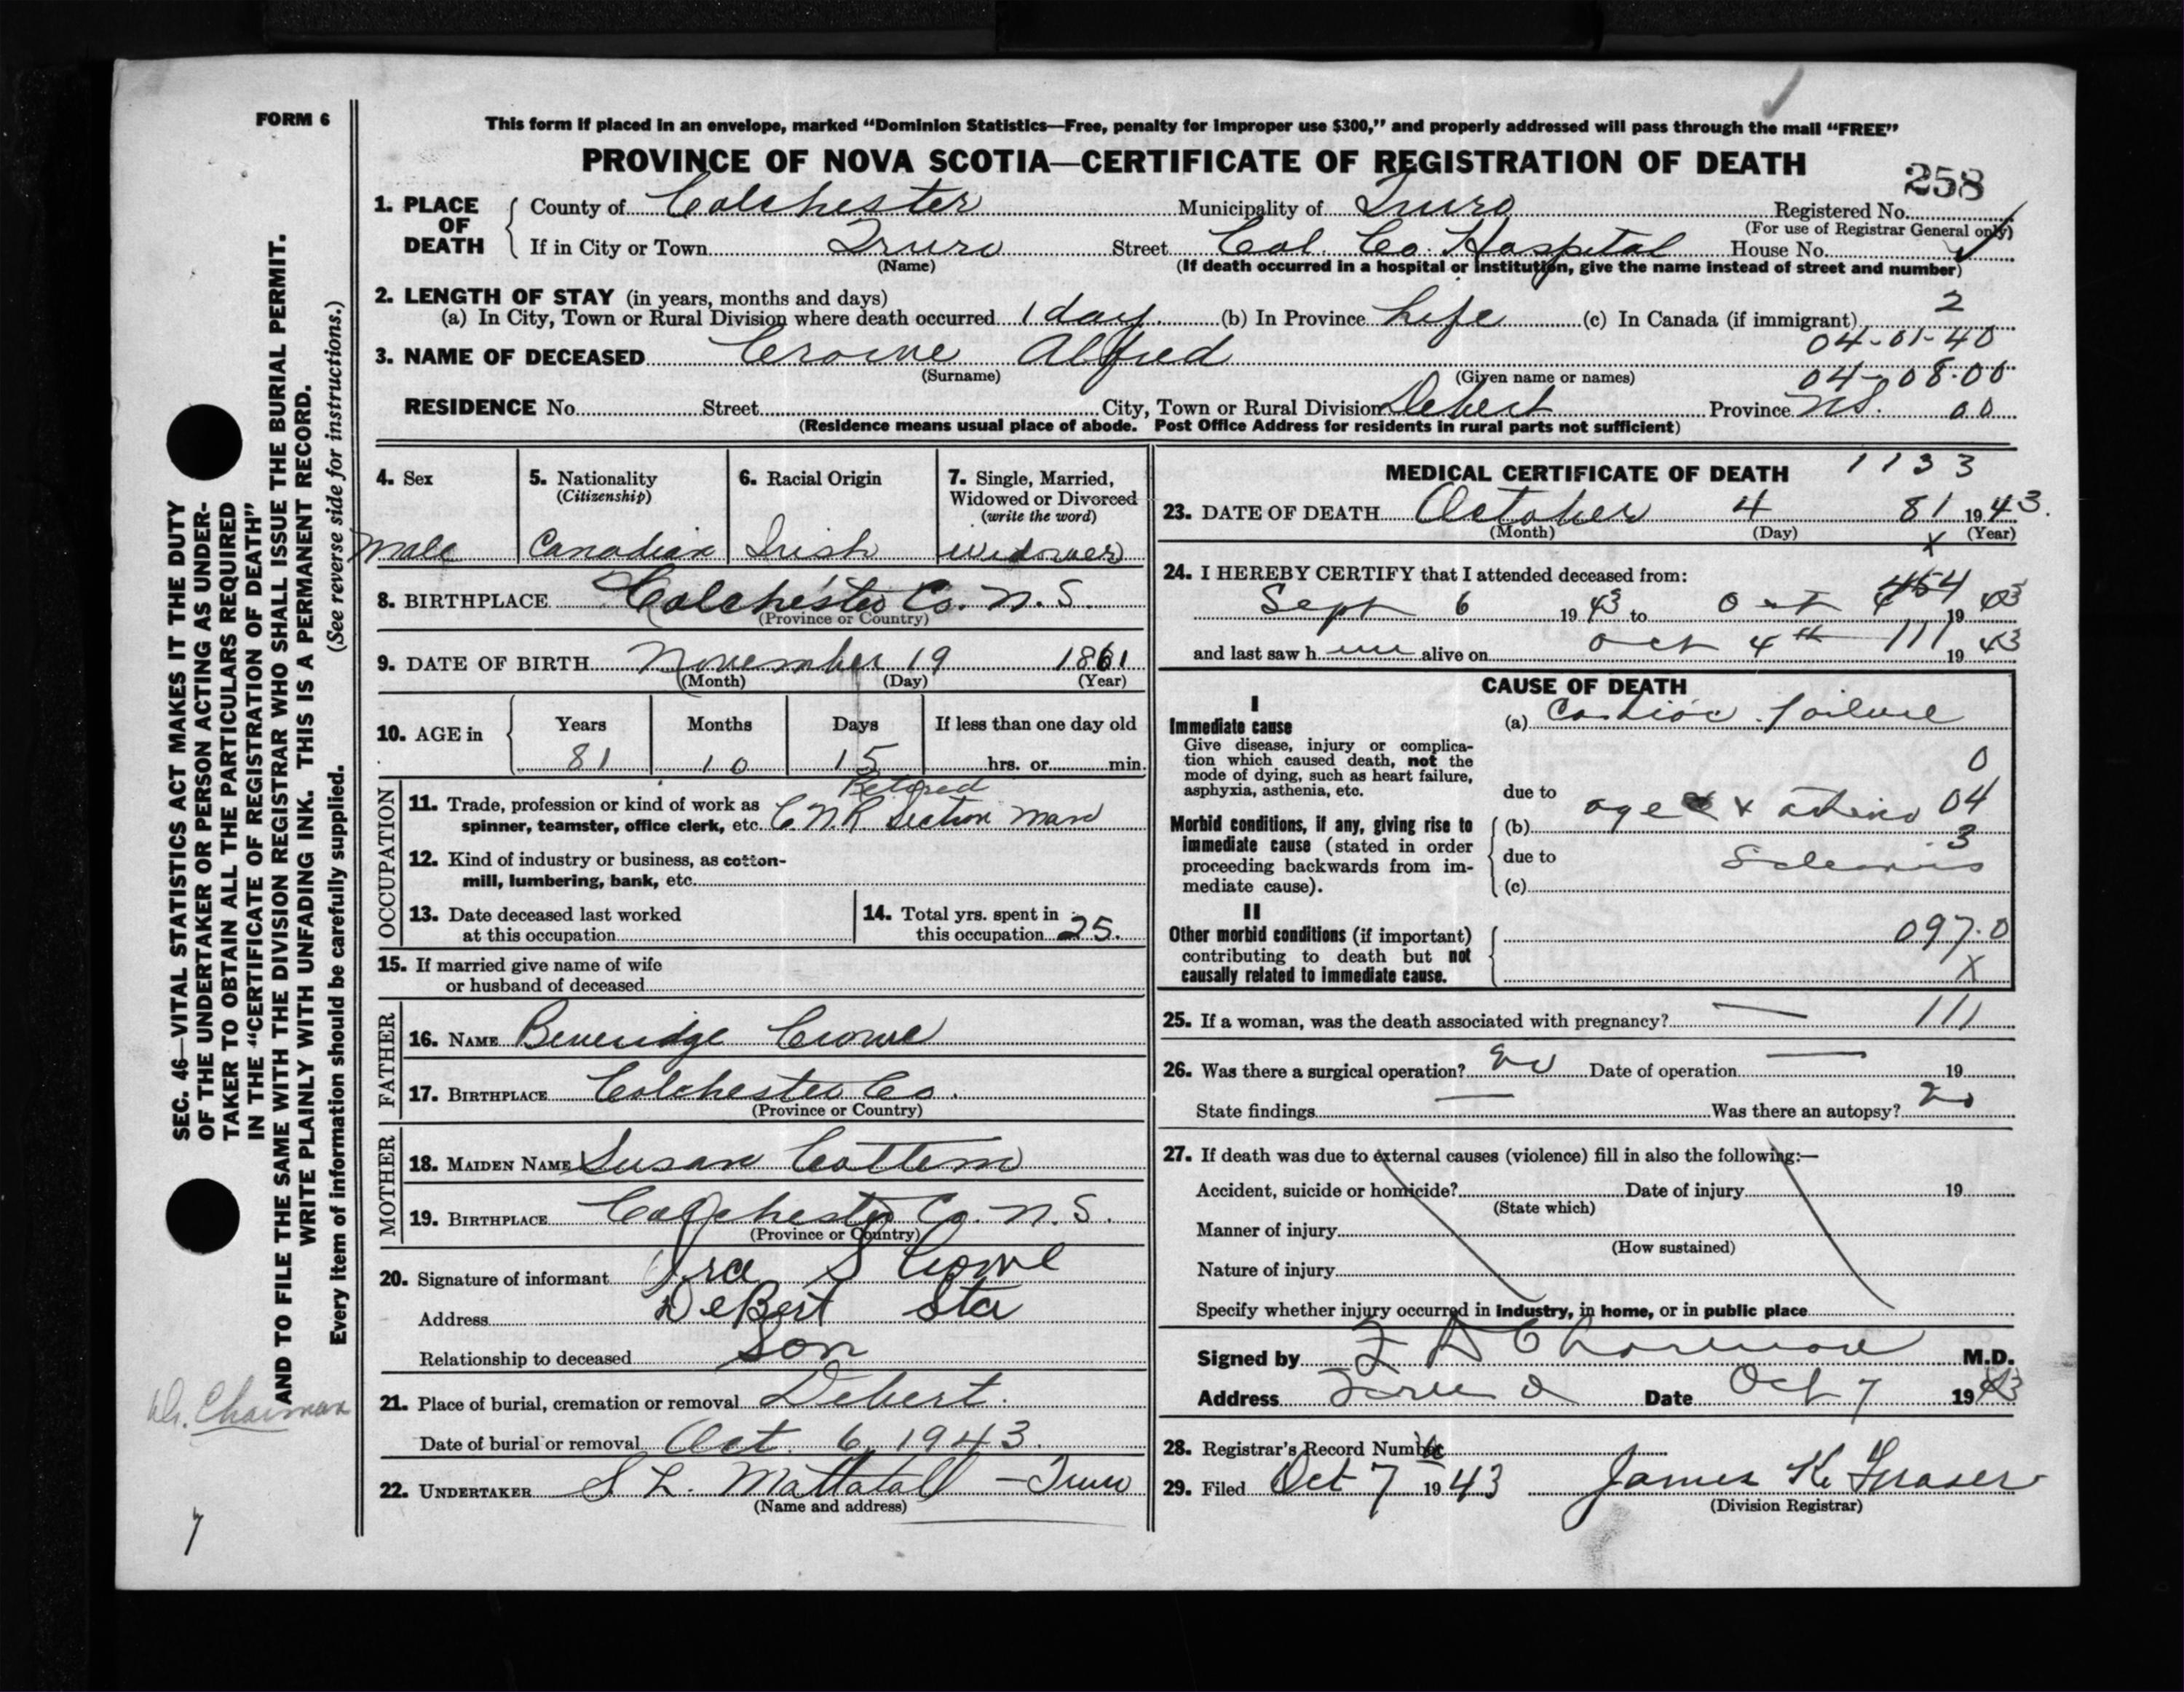 FORM 6
This form if placed in an envelope, marked “Dominion Statistics—Free, penalty for improper use $300,” and properly addressed will pass through the mail “FREE”
PROVINCE OF NOVA SCOTIA—CERTIFICATE OF REGISTRATION OF DEATH
258
1. PLACE OF DEATH County of Colchester Municipality of Truro Registered No.
(For use of Registrar General only)
If in City or Town Truro Street Col. Co. Hospital House No.
(Name) (If death occurred in a hospital or institution, give the name instead of street and number)
2. LENGTH OF STAY (in years, months and days)
(a) In City, Town or Rural Division where death occurred 1 day. (b) In Province Life (c) In Canada (if immigrant) 2
04-01-40
3. NAME OF DECEASED Crowe Alfred
(Surname) (Given name or names) 04-08-00
RESIDENCE No. Street City, Town or Rural Division Debert Province N.S. 00
(Residence means usual place of abode. Post Office Address for residents in rural parts not sufficient)
4. Sex
Male
5. Nationality
(Citizenship)
Canadian
6. Racial Origin
Irish
7. Single, Married,
Widowed or Divorced
(write the word)
Widower
8. BIRTHPLACE Colchester Co. N.S.
(Province or Country)
9. DATE OF BIRTH November 19 1861
(Month) (Day) (Year)
10. AGE in Years Months Days If less than one day old
81 10 15 hrs. or min.
OCCUPATION
Retired
11. Trade, profession or kind of work as
spinner, teamster, office clerk, etc. C.N.R. Section Man
12. Kind of industry or business, as cotton-
mill, lumbering, bank, etc.
13. Date deceased last worked
at this occupation
14. Total yrs. spent in
this occupation 25.
15. If married give name of wife
or husband of deceased
FATHER
16. NAME Beveridge Crowe
17. BIRTHPLACE Colchester Co.
(Province or Country)
MOTHER
18. MAIDEN NAME Susan Cottem
19. BIRTHPLACE Colchester Co. N.S.
(Province or Country)
20. Signature of informant Ira S Crowe
Address DeBert Sta
Relationship to deceased Son
21. Place of burial, cremation or removal Debert.
Date of burial or removal Oct. 6, 1943.
22. UNDERTAKER S L. Mattatall – Truro
(Name and address)
MEDICAL CERTIFICATE OF DEATH 1133
23. DATE OF DEATH October 4 81 1943.
(Month) (Day) (Year)
X
24. I HEREBY CERTIFY that I attended deceased from:
454
Sept 6 1943 to Oct 4 1943
and last saw h im alive on Oct 4th 111 1943
CAUSE OF DEATH
I
Immediate cause (a) Cardiac failure
Give disease, injury or complica-
tion which caused death, not the
mode of dying, such as heart failure,
asphyxia, asthenia, etc.
0
due to
04
Morbid conditions, if any, giving rise to
immediate cause (stated in order
proceeding backwards from im-
mediate cause).
(b) age &
3
due to
(c)
II
Other morbid conditions (if important)
contributing to death but not
causally related to immediate cause.
097.0
X
25. If a woman, was the death associated with pregnancy? — 111
26. Was there a surgical operation? no Date of operation — 19
State findings — Was there an autopsy? no
27. If death was due to external causes (violence) fill in also the following:—
Accident, suicide or homicide? Date of injury 19
(State which)
Manner of injury
(How sustained)
Nature of injury
Specify whether injury occurred in industry, in home, or in public place
Signed by Charman M.D.
Address Truro Date Oct 7 1943
28. Registrar's Record Number
29. Filed Oct 7 1943 James K. Fraser
(Division Registrar)
SEC. 46—VITAL STATISTICS ACT MAKES IT THE DUTY
OF THE UNDERTAKER OR PERSON ACTING AS UNDER-
TAKER TO OBTAIN ALL THE PARTICULARS REQUIRED
IN THE “CERTIFICATE OF REGISTRATION OF DEATH”
AND TO FILE THE SAME WITH THE DIVISION REGISTRAR WHO SHALL ISSUE THE BURIAL PERMIT.
WRITE PLAINLY WITH UNFADING INK. THIS IS A PERMANENT RECORD.
Every item of information should be carefully supplied. (See reverse side for instructions.)
Dr. Charman
7